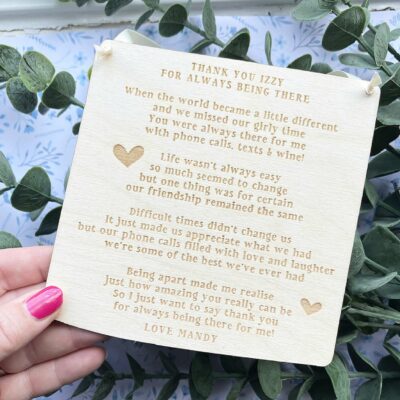 THANK YOU IZZY
FOR ALWAYS BEING THERE
When the world became a little different
and we missed our girly time
You were always there for me
with phone calls, texts & wine!
Life wasn't always easy
so much seemed to change
but one thing was for certain
our friendship remained the same
Difficult times didn't change us
It just made us appreciate what we had
but our phone calls filled with love and laughter
we're some of the best we've ever had
Being apart made me realise
Just how amazing you really can be
So I just want to say thank you
for always being there for me!
LOVE MANDY